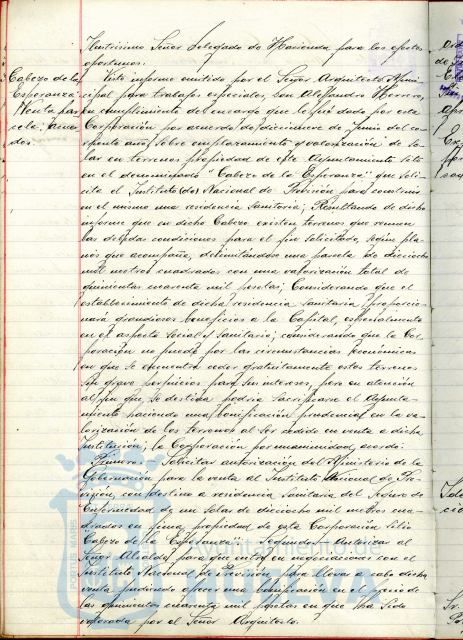 Ilustrísimo Señor Delegado de Hacienda para los efectos
oportunos.
Cabezo de la
Esperanza.
Venta par
cela. Acuer
dos.
Visto informe emitido por el Señor Arquitecto Muni-
cipal para trabajos especiales, Don Alejandro Herrero,
en cumplimiento del encargo que le fué dado por esta
Corporación por acuerdo de diecinueve de Junio del co-
rriente año, sobre emplazamiento y valorización de so-
lar en terrenos propiedad de este Ayuntamiento sito
en el denominado "Cabezo de la Esperanza" que soli-
cita el Instituto Nacional de Previsión para construir
en el mismo una residencia Sanitaria; Resultando de dicho
informe que en dicho Cabezo existen terrenos que reunen
las debidas condiciones para el fin solicitado, según pla-
nos que acompaña, delimitándose una parcela de dieciocho
mil metros cuadrados con una valorización total de
quinientas cuarenta mil pesetas; Considerando que el
establecimiento de dicha residencia sanitaria, proporcio-
nará grandiosos beneficios a la Capital, especialmente
en el aspecto social y sanitario; considerando que la Cor-
poración no puede por las circunstancias económicas
en que se encuentra ceder gratuitamente estos terrenos
sin grave perjuicios para sus intereses, pero en atención
al fin que se destina podría sacrificarse el Ayunta-
miento haciendo una bonificación prudencial en la va-
lorización de los terrenos al ser cedido en venta a dicha
Institución; la Corporación por unanimidad, acordó:
Primero: Solicitar autorización del Ministerio de la
Gobernación para la venta al Instituto Nacional de Pre-
visión, con destino a residencia sanitaria del Seguro de
Enfermedad de un solar de dieciocho mil metros cua-
drados en finca propiedad de esta Corporación sitio
"Cabezo de la Esperanza". Segundo: Autorizar al
Señor Alcalde para que entre en negociaciones con el
Instituto Nacional de Previsión, para llevar a cabo dicha
venta pudiendo ofrecer una bonificación en el precio de
las quinientas cuarenta mil pesetas en que ha sido
valorada por el Señor Arquitecto.
Ayuntamiento de
HUELVA